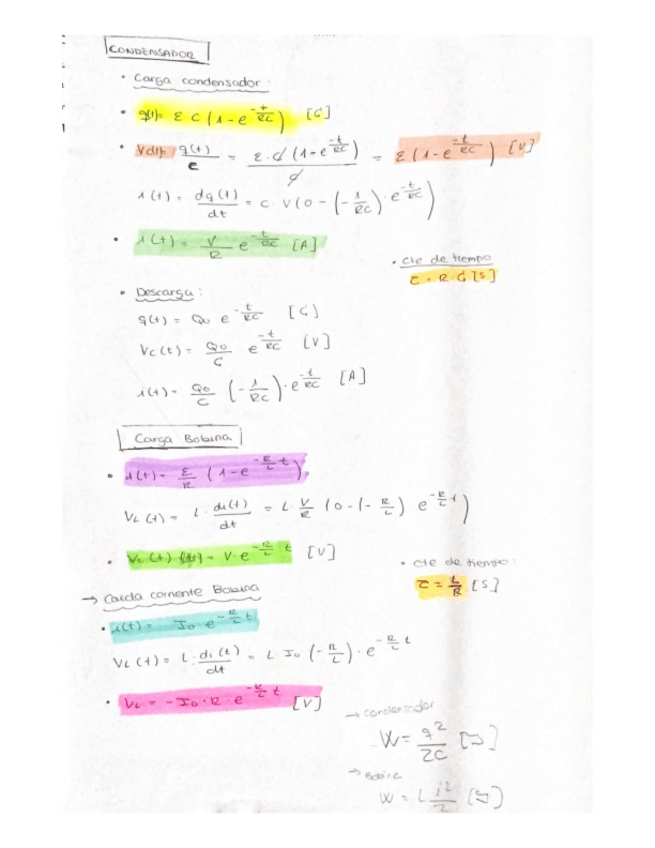 CONDENSADOR
• Carga condensador:
• q(t)= Ɛ C (1 - e^(-t/RC)) [C]
• Vc(t)= q(t)/C = Ɛ·C (1-e^(-t/RC))/C = Ɛ (1-e^(-t/RC)) [V]
i(t) = dq(t)/dt = C·V (0 - (-1/RC)·e^(-t/RC))
• i(t) = V/R e^(-t/RC) [A]
• Cte de tiempo
τ = R·C [s]
• Descarga:
q(t) = Qo e^(-t/RC) [C]
Vc(t) = Qo/C e^(-t/RC) [V]
i(t) = Qo/C (-1/RC)·e^(-t/RC) [A]
Carga Bobina
• i(t) = Ɛ/R (1-e^(-R/L t))
VL(t) = L·di(t)/dt = L·V/R (0-(-R/L) e^(-R/L t))
• VL(t) = V·e^(-R/L t) [V]
• cte de tiempo:
τ = L/R [s]
→ Caída corriente Bobina
• i(t) = Io·e^(-R/L t)
VL(t) = L·di(t)/dt = L·Io (-R/L)·e^(-R/L t)
• VL = -Io·R·e^(-R/L t) [V]
→ Condensador
W = q²/2C [J]
→ Bobina
W = L i²/2 [J]